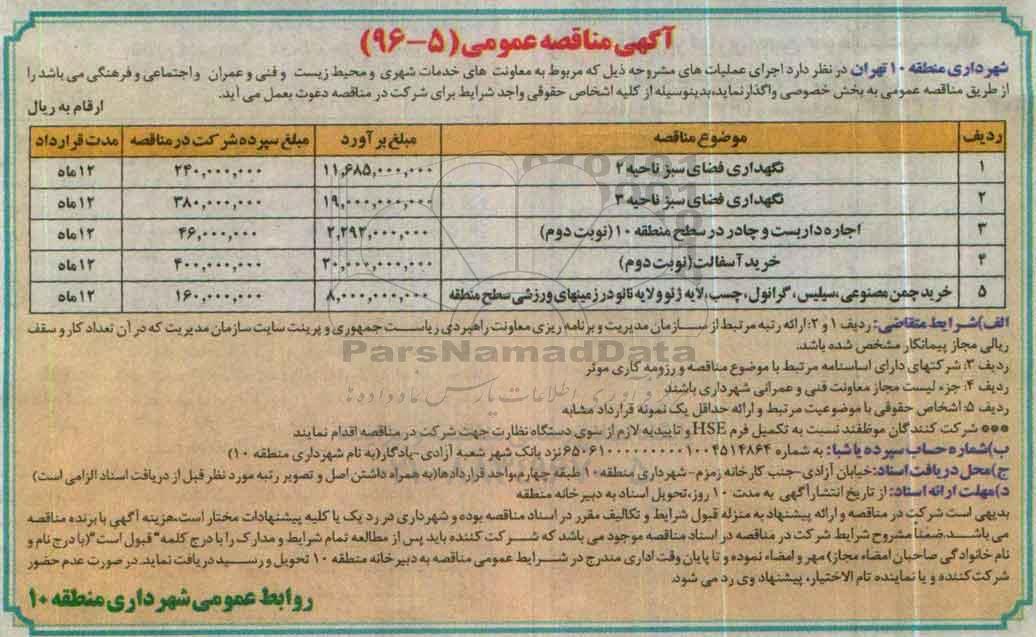 آگهی مناقصه عمومی (۵-۹۶)
شهرداری منطقه ۱۰ تهران در نظر دارد اجرای عملیات های مشروحه ذیل که مربوط به معاونت های خدمات شهری و محیط زیست و فنی و عمران و اجتماعی و فرهنگی می باشد را
از طریق مناقصه عمومی به بخش خصوصی واگذار نماید، بدینوسیله از کلیه اشخاص حقوقی واجد شرایط برای شرکت در مناقصه دعوت بعمل می آید.
ارقام به ریال
ردیف موضوع مناقصه مبلغ برآورد مبلغ سپرده شرکت در مناقصه مدت قرارداد
۱ نگهداری فضای سبز ناحیه ۲ ۱۱,۶۸۵,۰۰۰,۰۰۰ ۲۴۰,۰۰۰,۰۰۰ ۱۲ ماه
۲ نگهداری فضای سبز ناحیه ۳ ۱۹,۰۰۰,۰۰۰,۰۰۰ ۳۸۰,۰۰۰,۰۰۰ ۱۲ ماه
۳ اجاره داربست و چادر در سطح منطقه ۱۰ (نوبت دوم) ۲,۲۹۲,۰۰۰,۰۰۰ ۴۶,۰۰۰,۰۰۰ ۱۲ ماه
۴ خرید آسفالت (نوبت دوم) ۲۰,۰۰۰,۰۰۰,۰۰۰ ۴۰۰,۰۰۰,۰۰۰ ۱۲ ماه
۵ خرید چمن مصنوعی، سیلیس، گرانول، چسب، لایه ژئو و لایه نانو در زمینهای ورزشی سطح منطقه ۸,۰۰۰,۰۰۰,۰۰۰ ۱۶۰,۰۰۰,۰۰۰ ۱۲ ماه
الف) شرایط متقاضی: ردیف ۱ و ۲: ارائه رتبه مرتبط از سازمان مدیریت و برنامه ریزی معاونت راهبردی ریاست جمهوری و پرینت سایت سازمان مدیریت که در آن تعداد کار و سقف
ریالی مجاز پیمانکار مشخص شده باشد.
ردیف ۳: شرکتهای دارای اساسنامه مرتبط با موضوع مناقصه و رزومه کاری موثر
ParsNamadData
ردیف ۴: جزء لیست مجاز معاونت فنی و عمرانی شهرداری باشند
ردیف ۵: اشخاص حقوقی با موضوعیت مرتبط و ارائه حداقل یک نمونه قرارداد مشابه
*** شرکت کنندگان موظفند نسبت به تکمیل فرم HSE و تاییدیه لازم از سوی دستگاه نظارت جهت شرکت در مناقصه اقدام نمایند
ب) شماره حساب سپرده یا شبا: به شماره نزد بانک شهر شعبه آزادی-یادگار (به نام شهرداری منطقه ۱۰)
ج) محل دریافت اسناد: خیابان آزادی-جنب کارخانه زمزم-شهرداری منطقه ۱۰ طبقه چهارم، واحد قراردادها (به همراه داشتن اصل و تصویر رتبه مورد نظر قبل از دریافت اسناد الزامی است)
د) مهلت ارائه اسناد: از تاریخ انتشار آگهی به مدت ۱۰ روز، تحویل اسناد به دبیرخانه منطقه
بدیهی است شرکت در مناقصه و ارائه پیشنهاد به منزله قبول شرایط و تکالیف مقرر در اسناد مناقصه بوده و شهرداری در رد یک یا کلیه پیشنهادات مختار است، هزینه آگهی با برنده مناقصه
می باشد. ضمنا مشروح شرایط شرکت در مناقصه در اسناد مناقصه موجود می باشد که شرکت کننده باید پس از مطالعه تمام شرایط و مدارک را با درج کلمه "قبول است" (با درج نام و
نام خانوادگی صاحبان امضاء مجاز) مهر و امضاء نموده و تا پایان وقت اداری مندرج در شرایط عمومی مناقصه به دبیرخانه منطقه ۱۰ تحویل و رسید دریافت نماید. در صورت عدم حضور
شرکت کننده و یا نماینده تام الاختیار، پیشنهاد وی رد می شود.
روابط عمومی شهرداری منطقه ۱۰